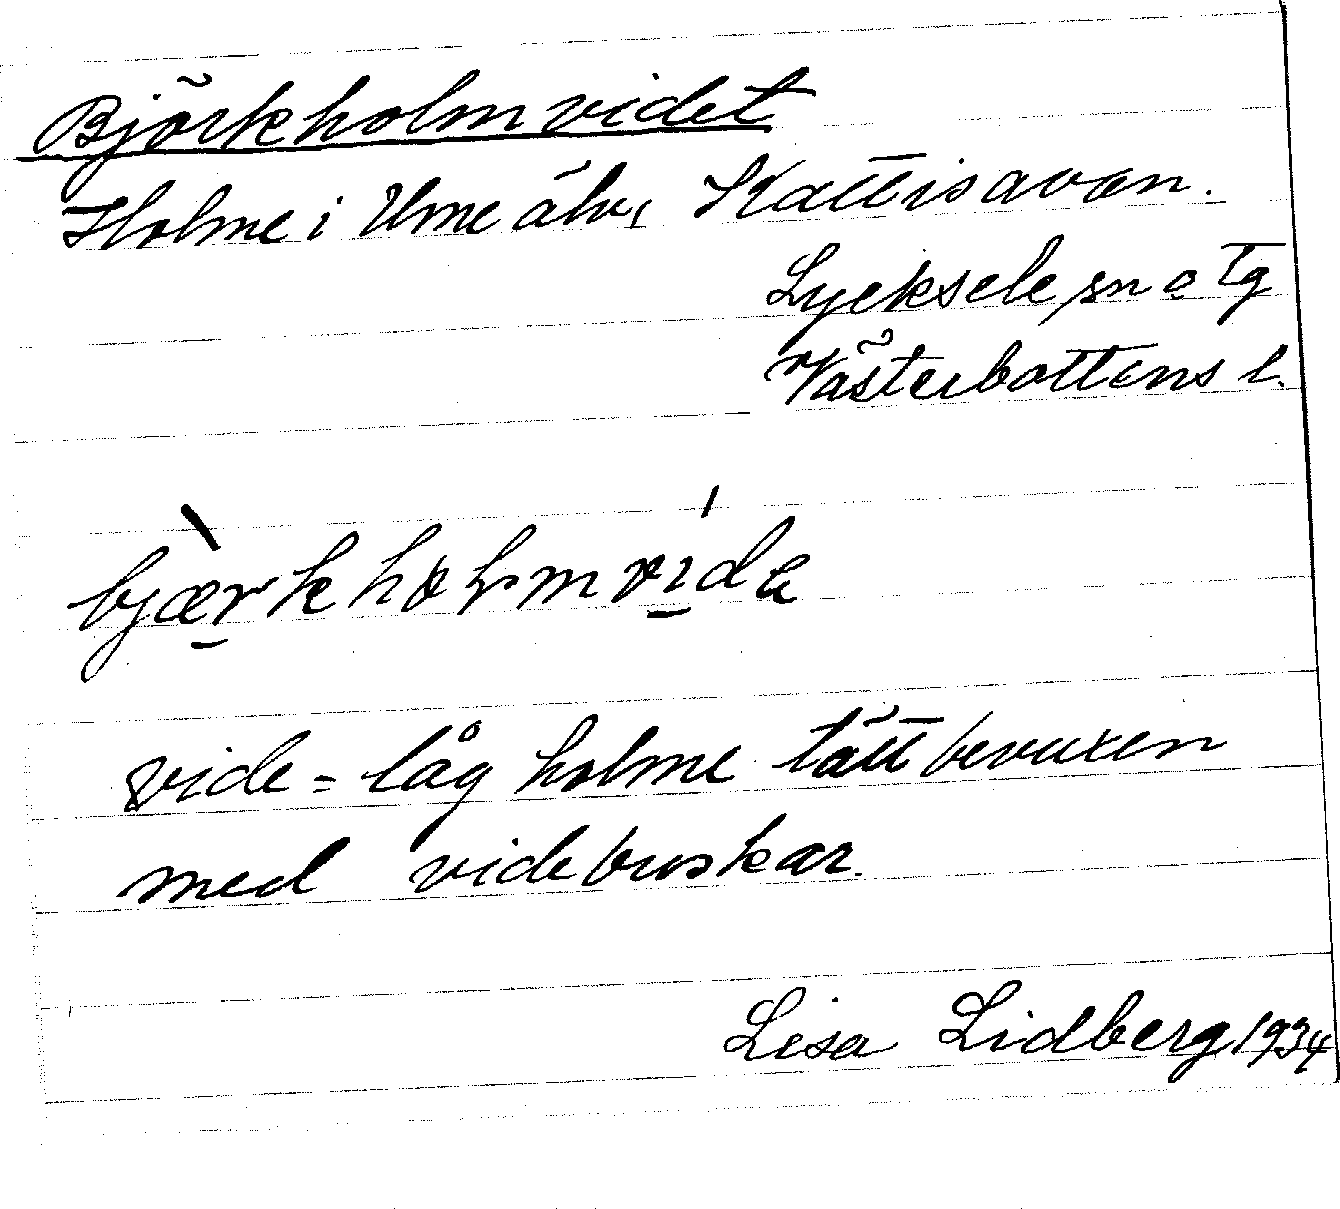 Björkholmvidet
Holme i Ume älv, Kattisavan.
Lycksele sn o Tg
Västerbottens l.
bjæ̀r̠khoḷmví̠da
vide = låg holme tätt bevuxen
med videbuskar.
Lisa Lidberg 1934